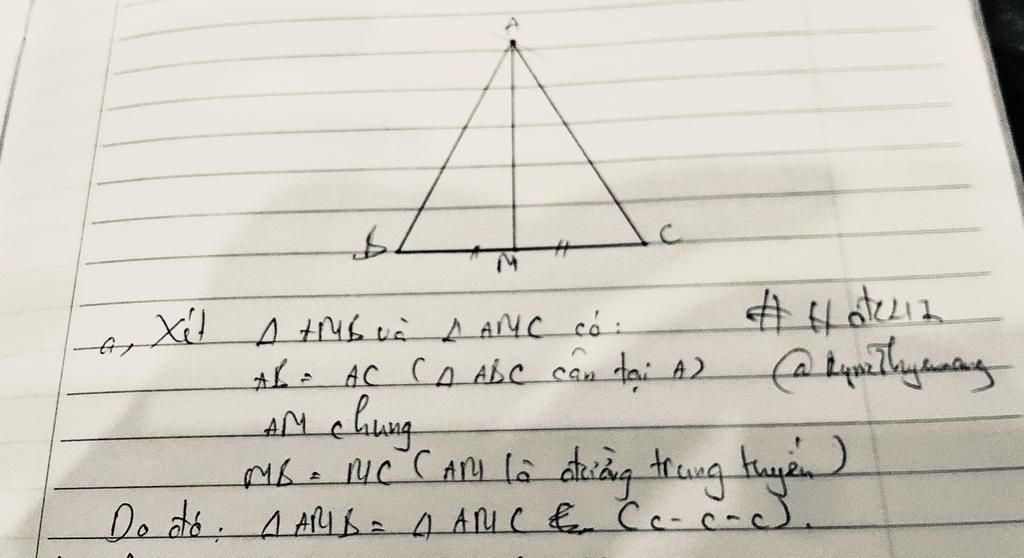 A
B
M
C
a, Xét Δ AMB và Δ AMC có:
AB = AC (Δ ABC cân tại A)
AM chung
MB = MC (AM là đường trung tuyến)
Do đó: Δ AMB = Δ AMC (c-c-c).